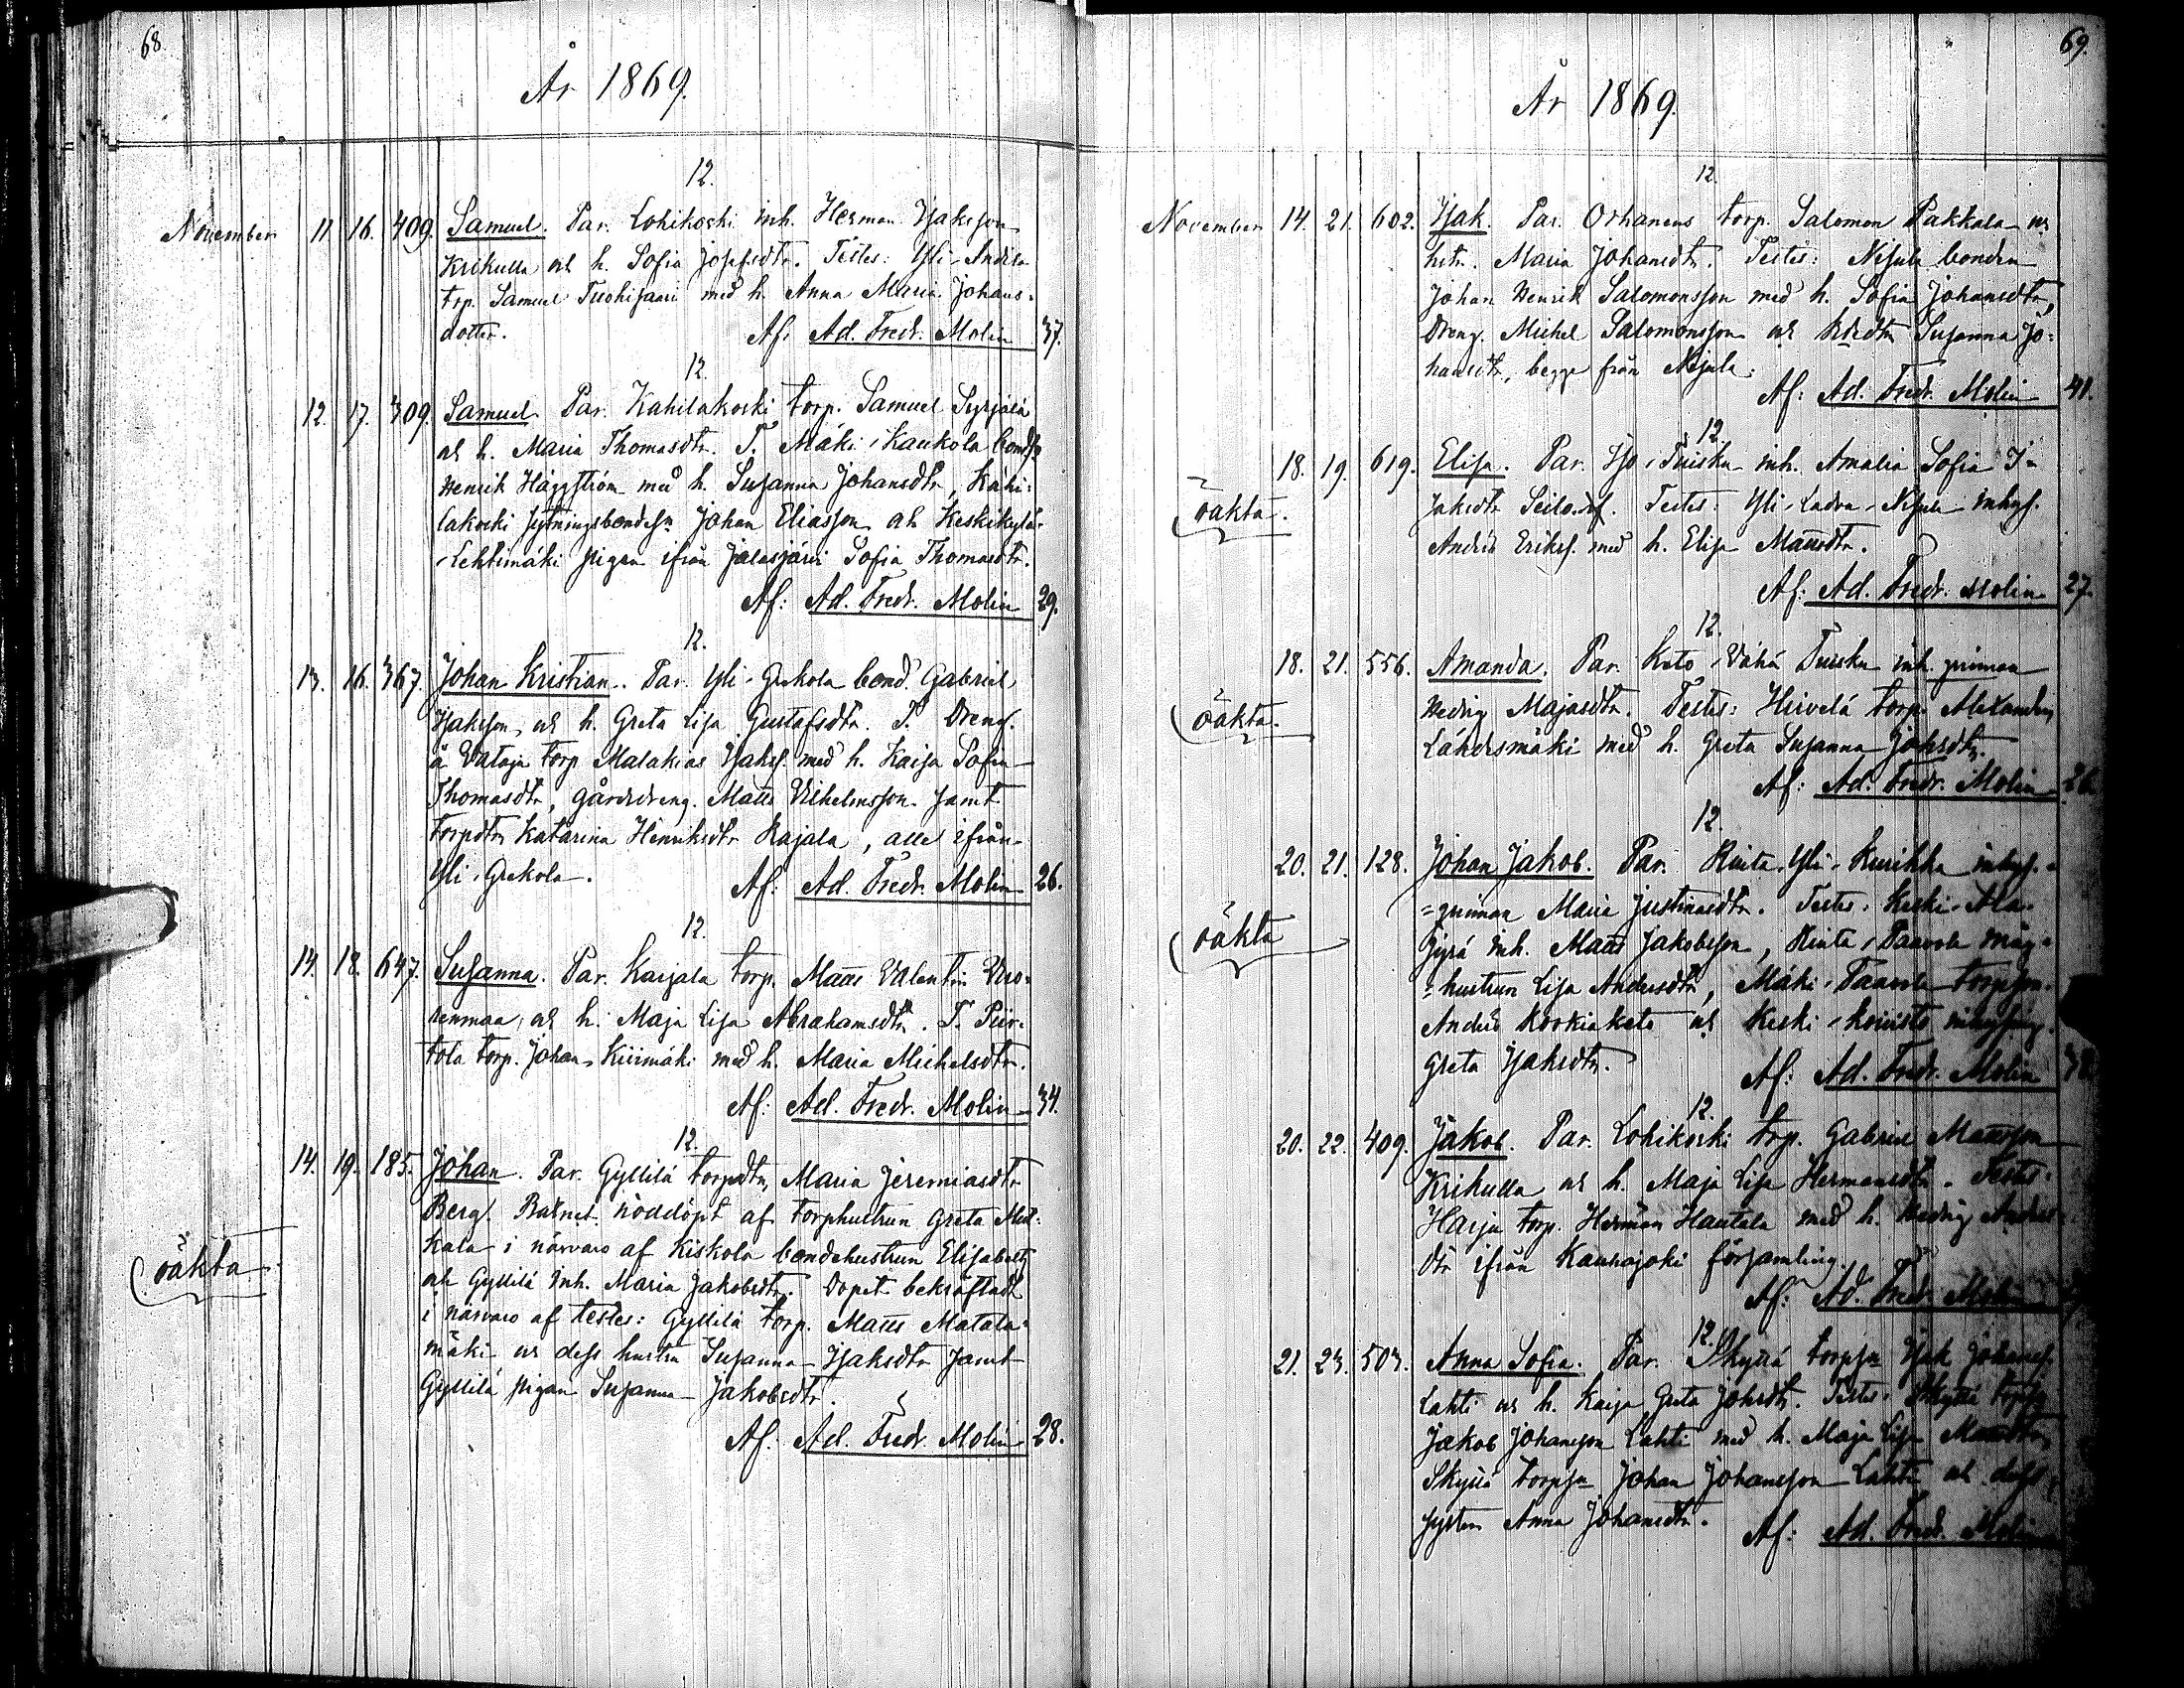 68
År 1869.
12.
November 11 16. 409. Samuel. Par. Lohikoski inh. Herman Isaksson
Krikulla och h. Sofia Josefsdtr. Testes: Yli-Andila
trp. Samuel Tuohisaari med h. Anna Maria Johans-
dotter. Af: Ad. Fredr. Molin 37.
12.
12. 17. 309. Samuel. Par. Kahilakoski torp. Samuel Syrjälä
och h. Maria Thomasdtr. T. Mäki-Kaukola bonds.
Henrik Häggström med h. Susanna Johansdtr, Kahi-
lakoski sytningsbondesn Johan Eliasson och Keskikylä-
-Lehtimäki pigan ifrån Jalasjärvi Sofia Thomasdtr.
Af: Ad. Fredr. Molin 29.
12.
13. 16. 367. Johan Kristian. Par. Yli-Grekola bond. Gabriel
Isaksson och h. Greta Lisa Gustafsdtr. T. Dreng.
å Vataja torp Malakias Isaks. med h. Kaisa Sofia
Thomasdtr, gårdsdreng. Matts Vilhelmsson samt
torpdtr Katarina Henriksdtr Rajala, alla ifrån
Yli-Grekola. Af: Ad. Fredr. Molin 26.
12.
14. 18. 647. Susanna. Par. Karjala torp. Matts Valentin Vuo-
renmaa och h. Maja Lisa Abrahamsdtr. T. Piir-
tola torp. Johan Kiiimäki med h. Maria Michelsdtr.
Af: Ad. Fredr. Molin 34.
12.
14. 19. 185. Johan. Par. Gyllilä torpdtr, Maria Jeremiasdtr
Berg. Barnet nöddöpt af torphustrun Greta
kala i närvaro af Kiskola bondehustrun Elisabeth
öäkta
och Gyllilä inh. Maria Jakobsdtr. Dopet bekräftadt
i närvaro af testes: Gyllilä torp. Matts Matala-
mäki och dess hustru Susanna Isaksdtr samt
Gyllilä pigan Susanna Jakobsdtr.
Af: Ad. Fredr. Molin 28.
69.
År 1869.
12.
November 14. 21. 602. Isak. Par. Orhanens torp. Salomon Pakkala och
hstr. Maria Johansdtr. Testes: Nisula bonden
Johan Henrik Salomonsson med h. Sofia Johansdtr,
Dreng. Michel Salomonsson och bdedtr Susanna Jo-
hansdtr, begge från Nisula.
Af: Ad. Fredr. Molin 41.
12.
18. 19. 619. Elisa. Par. Iso-Tuisku inh. Amalia Sofia I-
öäkta.
saksdtr Testes: Yli-Ladva-Nisula inhys.
Anders Eriks. med h. Elisa Mattsdtr.
Af: Ad. Fredr. Molin 27.
12.
18. 21. 556. Amanda. Par. Koto-Vähä Tuisku inh. qvinnan
öäkta.
Hedvig Majasdtr. Testes: Hirvelä torp. Alexander
Lähdesmäki med h. Greta Susanna Johsdtr.
Af: Ad. Fredr. Molin 26
12.
20. 21. 128. Johan Jakob. Par. Rinta-Yli-Kurikka inhys.-
öäkta
=qvinnan Maria Justinasdtr. Testes. Keski-Ala-
Jyrä inh. Matts Jakobsson, Rinta-Paavola måg-
=hustrun Lisa Andersdtr, Mäki-Paavola torpson.
Anders Korkiakoto och Keski-Koivisto
Greta Isaksdtr. Af: Ad. Fredr. Molin 38.
12.
20. 22. 409. Jakob. Par. Lohikoski trp. Gabriel Mattsson
Krikulla och h. Maja Lisa Hermansdtr. Testes:
Harju torp. Herman Hautala med h. Hedvig Anders-
dtr ifrån Kauhajoki församling.
Af: Ad. Fredr. Molin
12.
21. 23. 503. Anna Sofia. Par. Skyttä torpsn Isak Johanss.
Lahti och h. Kaisa Greta Johsdtr. Testes. Skyttä torps.
Jakob Johansson Lahti med h. Maja Lisa Mattsdtr
Skyttä torpsn Johan Johansson Lahti och dess
syster Anna Johansdtr. Af: Ad. Fredr. Molin